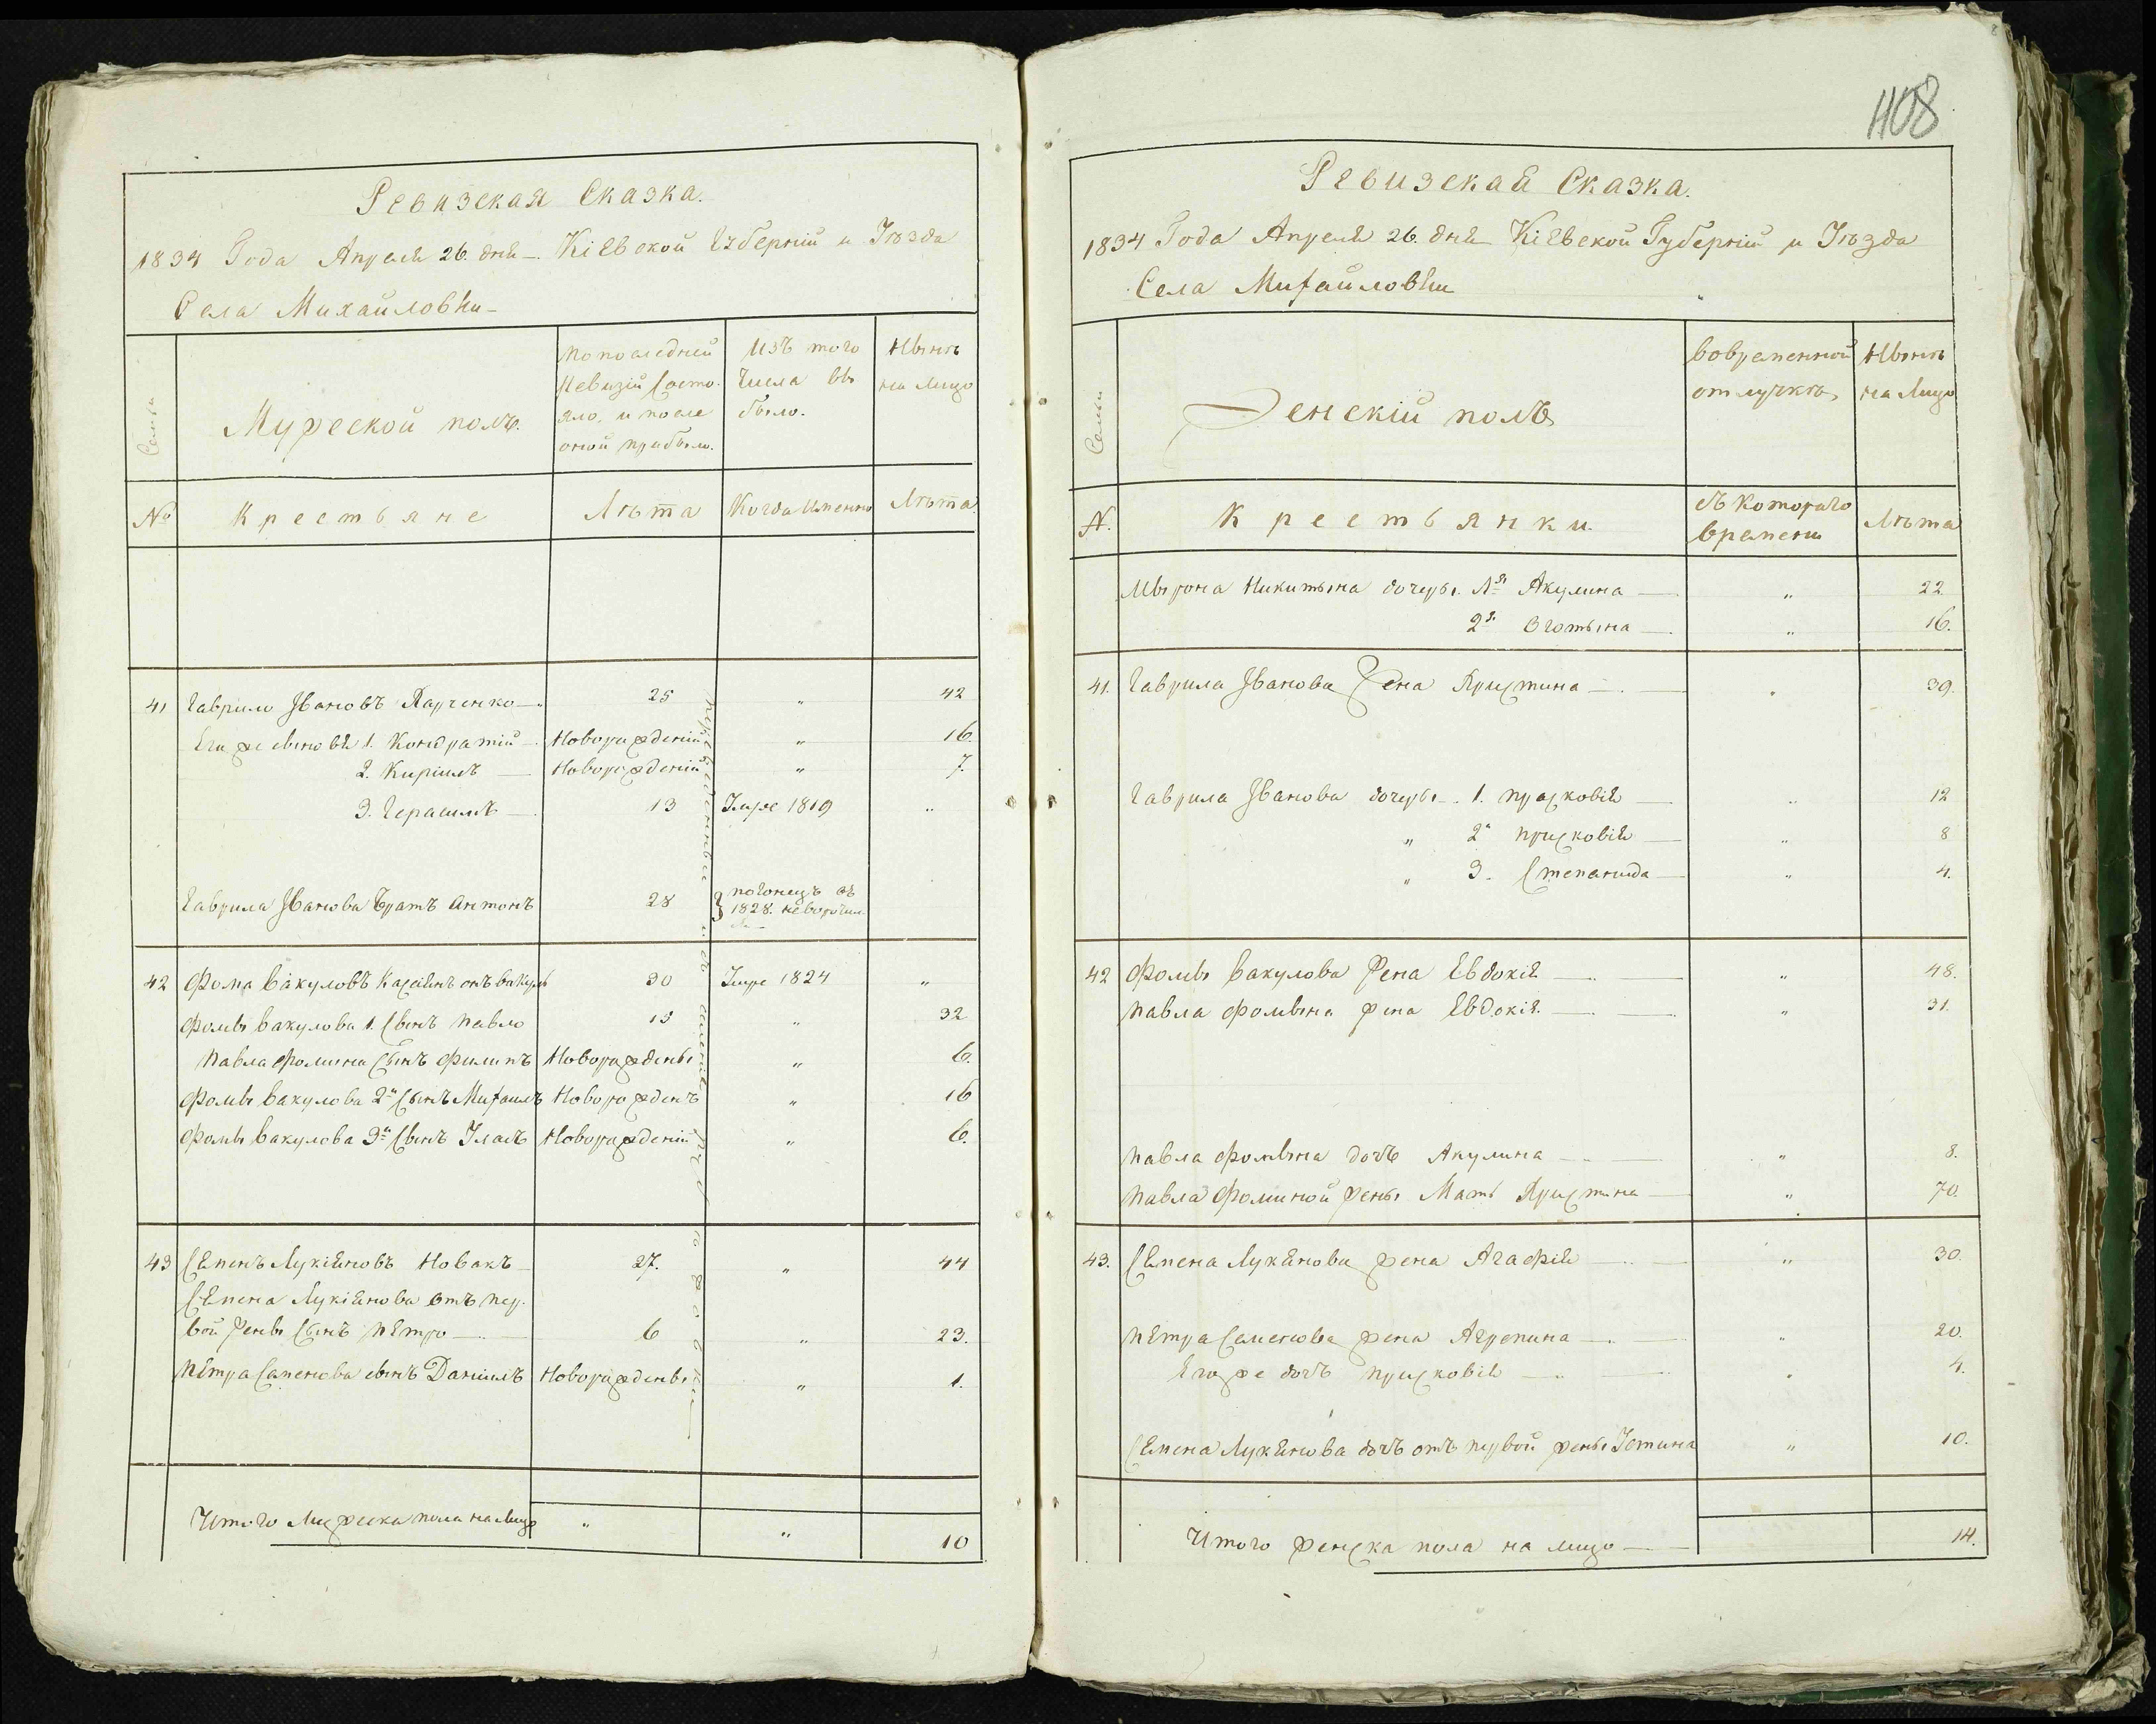 408
Ревизская Сказка.
1834 Года Апреля 26. дня – Кіевской Губерніи и Уѣзда
Села Михайловки –
Семьи
Мужеской полъ.
по последней
Ревизіи состо-
яло, и после
оной прибыло.
Изъ того
числа вы
было.
Нынѣ
на лицо
№
Крестьяне
Лѣта
Когда Именно
Лѣта
41 Гаврило Ивановъ Харченко – 25 „ 42
Его же сыновья 1. Кондратій – Новорожденій „ 16.
2. Кирилъ – Новорожденій „ 7.
3. Герасимъ – 13 Умре 1819 „
Гаврила Иванова братъ Антонъ 28
въ
1828.
42 Фома Вакуловъ 30 Умре 1824 „
Фомы Вакулова 1. сынъ Павло 15 „ 32
Павла Фомина сынъ Филипъ Новорожденъ „ 6.
Фомы Вакулова 2й сынъ Михаилъ Новорожденъ „ 16
Фомы Вакулова 3й сынъ Новорожденій „ 6.
43 Семенъ Лукіяновъ Новакъ 27. „ 44
Семена Лукіянова отъ пер-
вой жены сынъ Петро – 6 „ 23.
Петра Саменова сынъ Данилъ Новорожденъ „ 1.
Итого Мужеска пола на лицо „ „ 10
Ревизская Сказка.
1834 Года Апреля 26. дня Кіевской Губерніи и Уѣзда
Села Михайловки
Семьи
Женскій полъ
вовременной
отлучкѣ,
Нынѣ
на Лицо
№.
Крестьянки.
съ Котораго
времени
Лѣта
Мырона Никитына дочеры. 1я Акулина – „ 22
2я – „ 16.
41. Гаврила Иванова жена Христина – „ 39.
Гаврила Иванова дочеры – 1. Прасковія – „ 12
„ 2я Присковія – „ 8
„ 3. Степанида – „ 4.
42 Фомы Вакулова жена Евдокія – „ 48.
Павла Фомына жена Евдокія – „ 31.
Павла Фомына дочь Акулина – „ 8.
Павла Фоминой жены Мать Христина „ 70.
43. Семена Лукянова жена Агафія – „ 30.
Петра Саменова жена Агрепина – „ 20.
Его же дочь Присковія – „ 4.
Семена Лукянова дочъ отъ первой жены Устина „ 10.
Итого женска пола на лицо – 14.